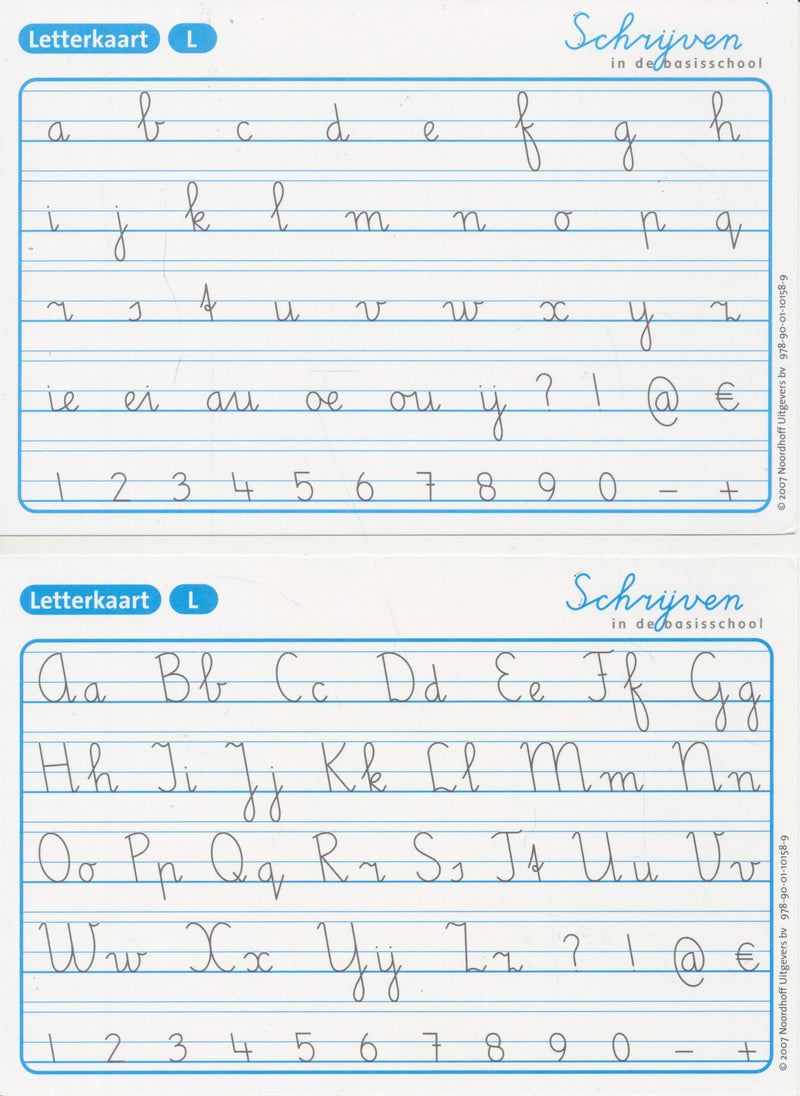 Letterkaart L
Schrijven
in de basisschool
a b c d e f g h
i j k l m n o p q
r s t u v w x y z
ie ei au oe ou ij ? ! @ €
1 2 3 4 5 6 7 8 9 0 – +
© 2007 Noordhoff Uitgevers bv 978-90-01-10158-9
Letterkaart L
Schrijven
in de basisschool
Aa Bb Cc Dd Ee Ff Gg
Hh Ii Jj Kk Ll Mm Nn
Oo Pp Qq Rr Ss Tt Uu Vv
Ww Xx Yij Zz ? ! @ €
1 2 3 4 5 6 7 8 9 0 – +
© 2007 Noordhoff Uitgevers bv 978-90-01-10158-9